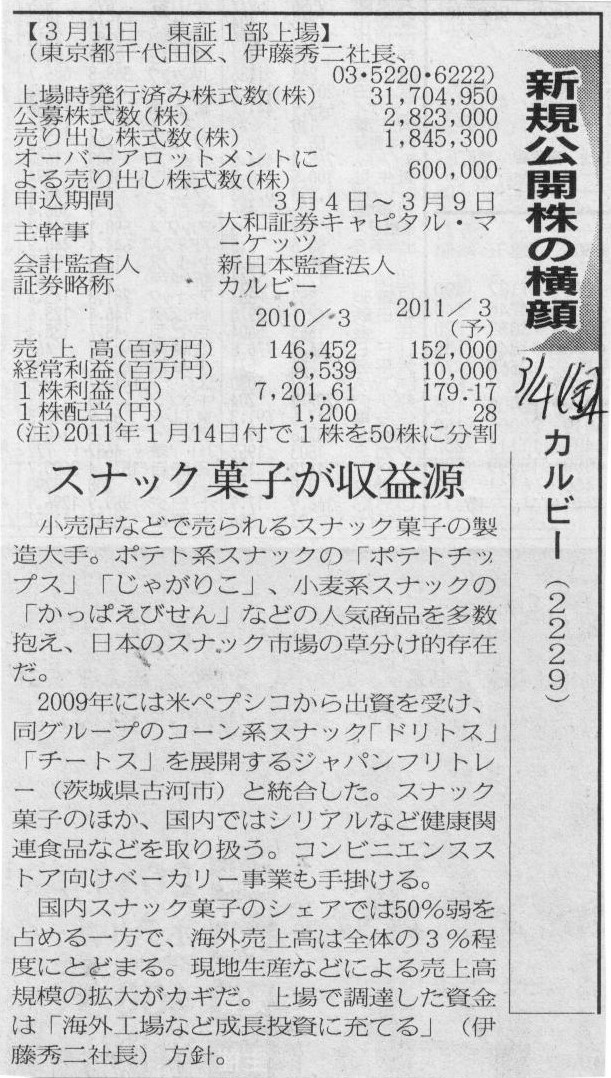 新規公開株の横顔
3/4(金)
カルビー(2229)
【3月11日 東証1部上場】
(東京都千代田区、伊藤秀二社長、
03・5220・6222)
上場時発行済み株式数(株) 31,704,950
公募株式数(株) 2,823,000
売り出し株式数(株) 1,845,300
オーバーアロットメントに
よる売り出し株式数(株) 600,000
申込期間 3月4日〜3月9日
主幹事 大和証券キャピタル・マ
ーケッツ
会計監査人 新日本監査法人
証券略称 カルビー
2010/3 2011/3
(予)
売上高(百万円) 146,452 152,000
経常利益(百万円) 9,539 10,000
1株利益(円) 7,201.61 179.17
1株配当(円) 1,200 28
(注)2011年1月14日付で1株を50株に分割
スナック菓子が収益源
小売店などで売られるスナック菓子の製
造大手。ポテト系スナックの「ポテトチッ
プス」「じゃがりこ」、小麦系スナックの
「かっぱえびせん」などの人気商品を多数
抱え、日本のスナック市場の草分け的存在
だ。
2009年には米ペプシコから出資を受け、
同グループのコーン系スナック「ドリトス」
「チートス」を展開するジャパンフリトレ
ー(茨城県古河市)と統合した。スナック
菓子のほか、国内ではシリアルなど健康関
連食品などを取り扱う。コンビニエンスス
トア向けベーカリー事業も手掛ける。
国内スナック菓子のシェアでは50%弱を
占める一方で、海外売上高は全体の3%程
度にとどまる。現地生産などによる売上高
規模の拡大がカギだ。上場で調達した資金
は「海外工場など成長投資に充てる」(伊
藤秀二社長)方針。